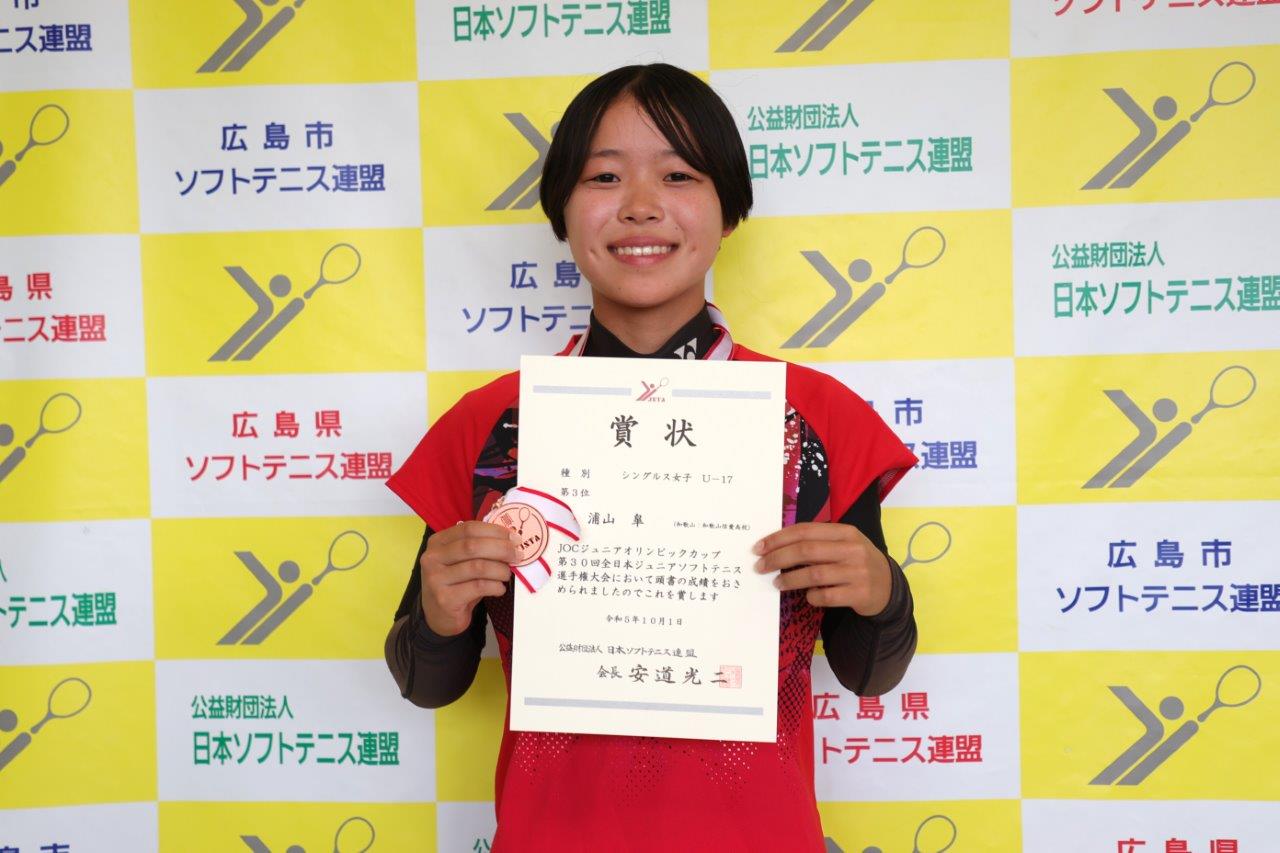 ニス連盟
日本ソフトテニス連盟
広島市
ソフトテニス連盟
公益財団法人
日本ソフトテニス連盟
島県
テニス連盟
広島市
ソフトテニ
公益財団法人
日本ソフトテニス連盟
広島県
ソフトテニス連盟
市
連盟
広島市
ソフトテニス連盟
フトテニス連盟
公益財団法人
日本ソフトテニス連盟
広島県
トテニス連盟
市
広島県
JSTA
賞状
種別 シングルス女子 U-17
第3位
浦山 皐 (和歌山:和歌山信愛高校)
JOCジュニアオリンピックカップ
第30回全日本ジュニアソフトテニス
選手権大会において頭書の成績をおさ
められましたのでこれを賞します
令和5年10月1日
公益財団法人 日本ソフトテニス連盟
会長 安道光二